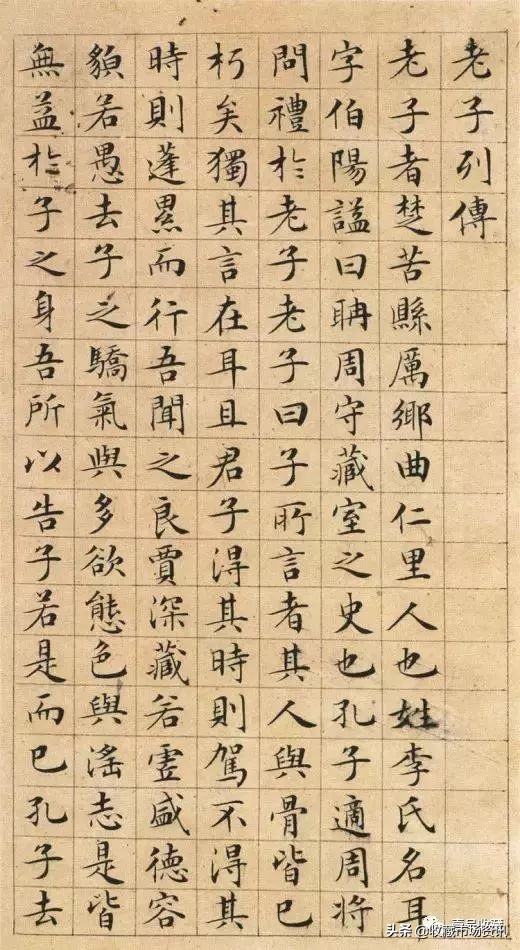 老子列傳
老子者楚苦縣厲鄉曲仁里人也姓李氏名耳
字伯陽諡曰聃周守藏室之史也孔子適周將
問禮於老子老子曰子所言者其人與骨皆已
朽矣獨其言在耳且君子得其時則駕不得其
時則蓬累而行吾聞之良賈深藏若虛盛德容
貌若愚去子之驕氣與多欲態色與淫志是皆
無益於子之身吾所以告子若是而已孔子去
头条 @收藏市场资讯